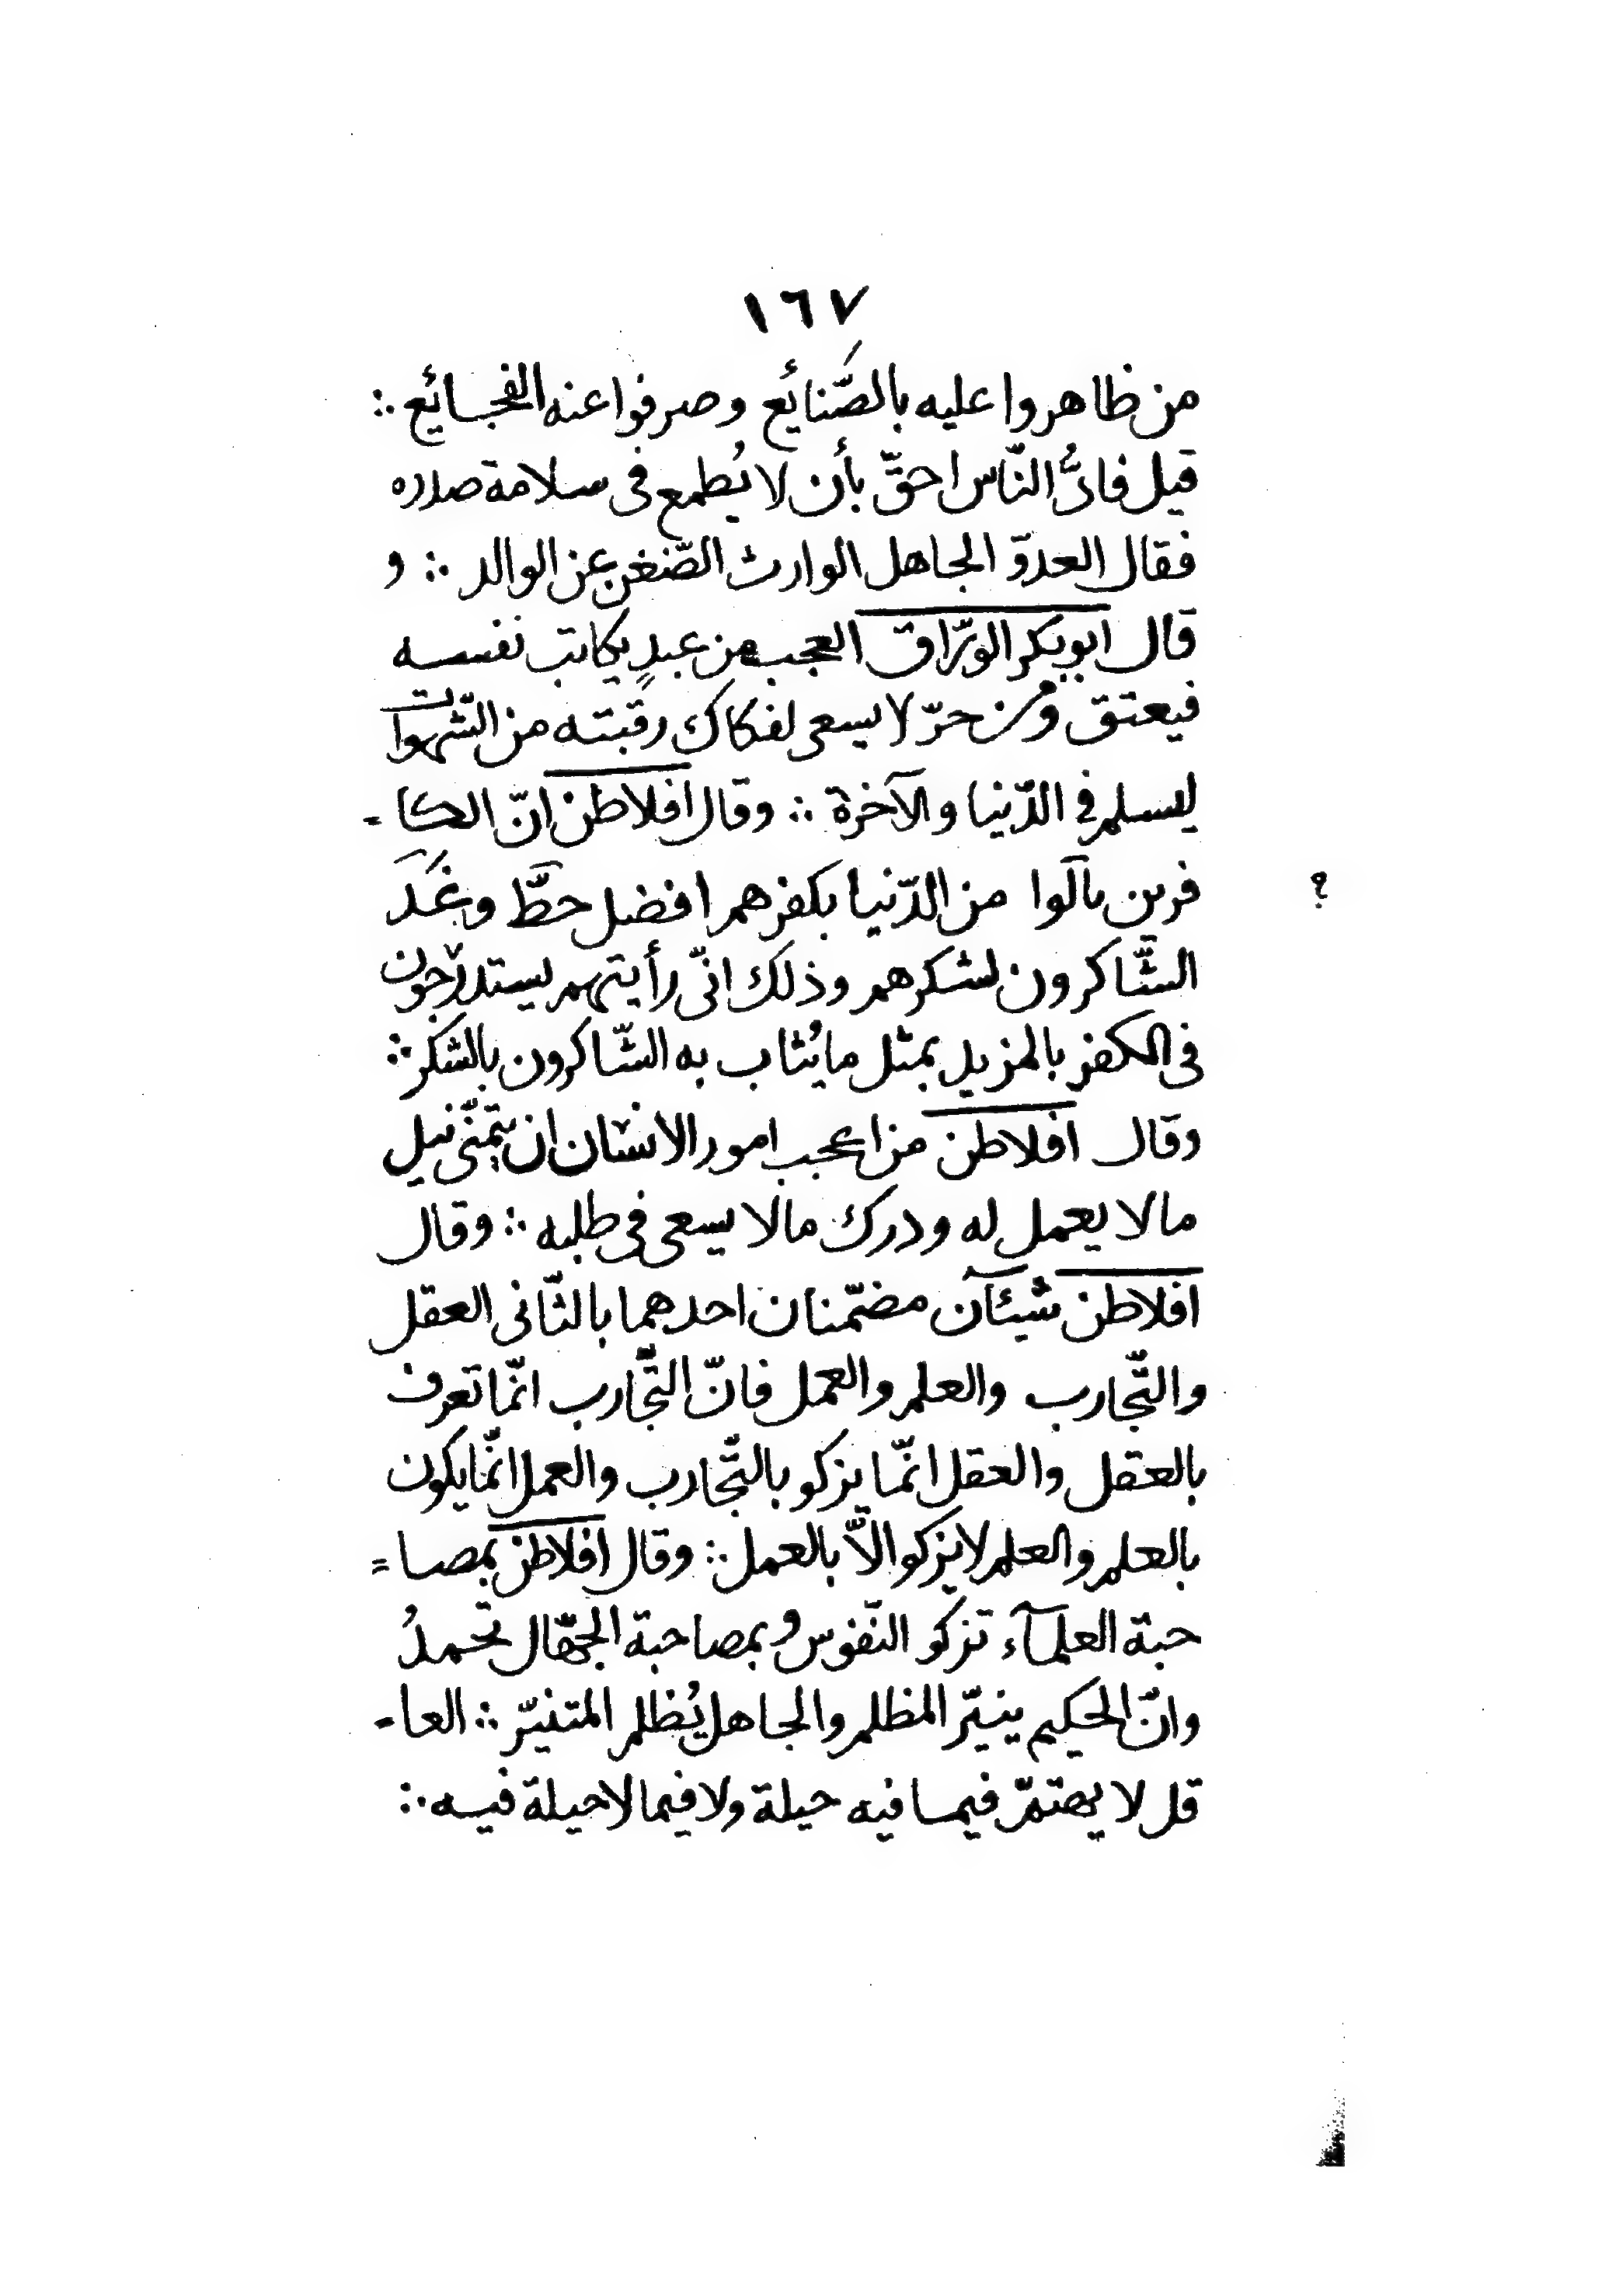 ١٦٧
من ظاهروا عليه بالصَّنائَع وصرفوا عنه الفجسائَع ∴
قيل فايُّ النّاس احقّ بأن لا يُطمع فى سلامة صدره
فقال العدوّ الجاهل الوارث الضّغن عن الوالد ∴ و
قال ابو بكر الورّاق العجب من عبدٍ يكاتب نفسه
فيعتق ومن حرّ لا يسعى لفكاك رقبته من الشّهوات
ليسلم فى الدّنيا والآخرة ∴ وقال افلاطن انّ الكا -
فرين نالوا من الدّنيا بكفرهم افضل حظّ وعَدَ ؟
الشّاكرون لشكرهم وذلك انّى رأيتهم يستدرجون
فى الكفر بالمزيد بمثل ما يُثاب به الشّاكرون بالشكر ∴
وقال افلاطن من اعجب امور الانسان ان يتمنّى نيل
مالا يعمل له ودرك مالا يسعى فى طلبه ∴ وقال
افلاطن شيئآن مضمّنان احدهما بالثّانى العقل
والتّجارب والعلم والعمل فانّ التّجارب انّما تعرف
بالعقل والعقل انّما يزكو بالتّجارب والعمل انّما يكون
بالعلم والعلم لا يزكو الاّ بالعمل ∴ وقال افلاطن بمصا =
حبة العلمآء تزكو النّفوس وبمصاحبة الجهّال تخمدُ
وانّ الحكيم ينيّر المظلم والجاهل يُظلم المتنيّر ∴ العا -
قل لا يهتمّ فيما فيه حيلة ولا فيما لا حيلة فيه ∴